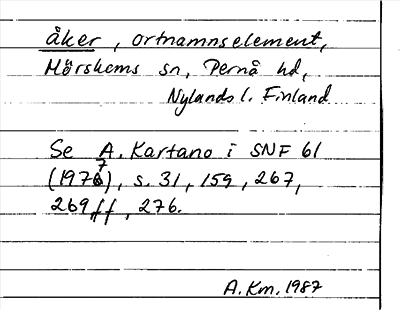 åker, ortnamnselement,
Mörskoms sn, Pernå hd,
Nylands l. Finland
Se A. Kartano i SNF 61
(1977), s. 31, 159, 267,
269ff, 276.
A. Km. 1987